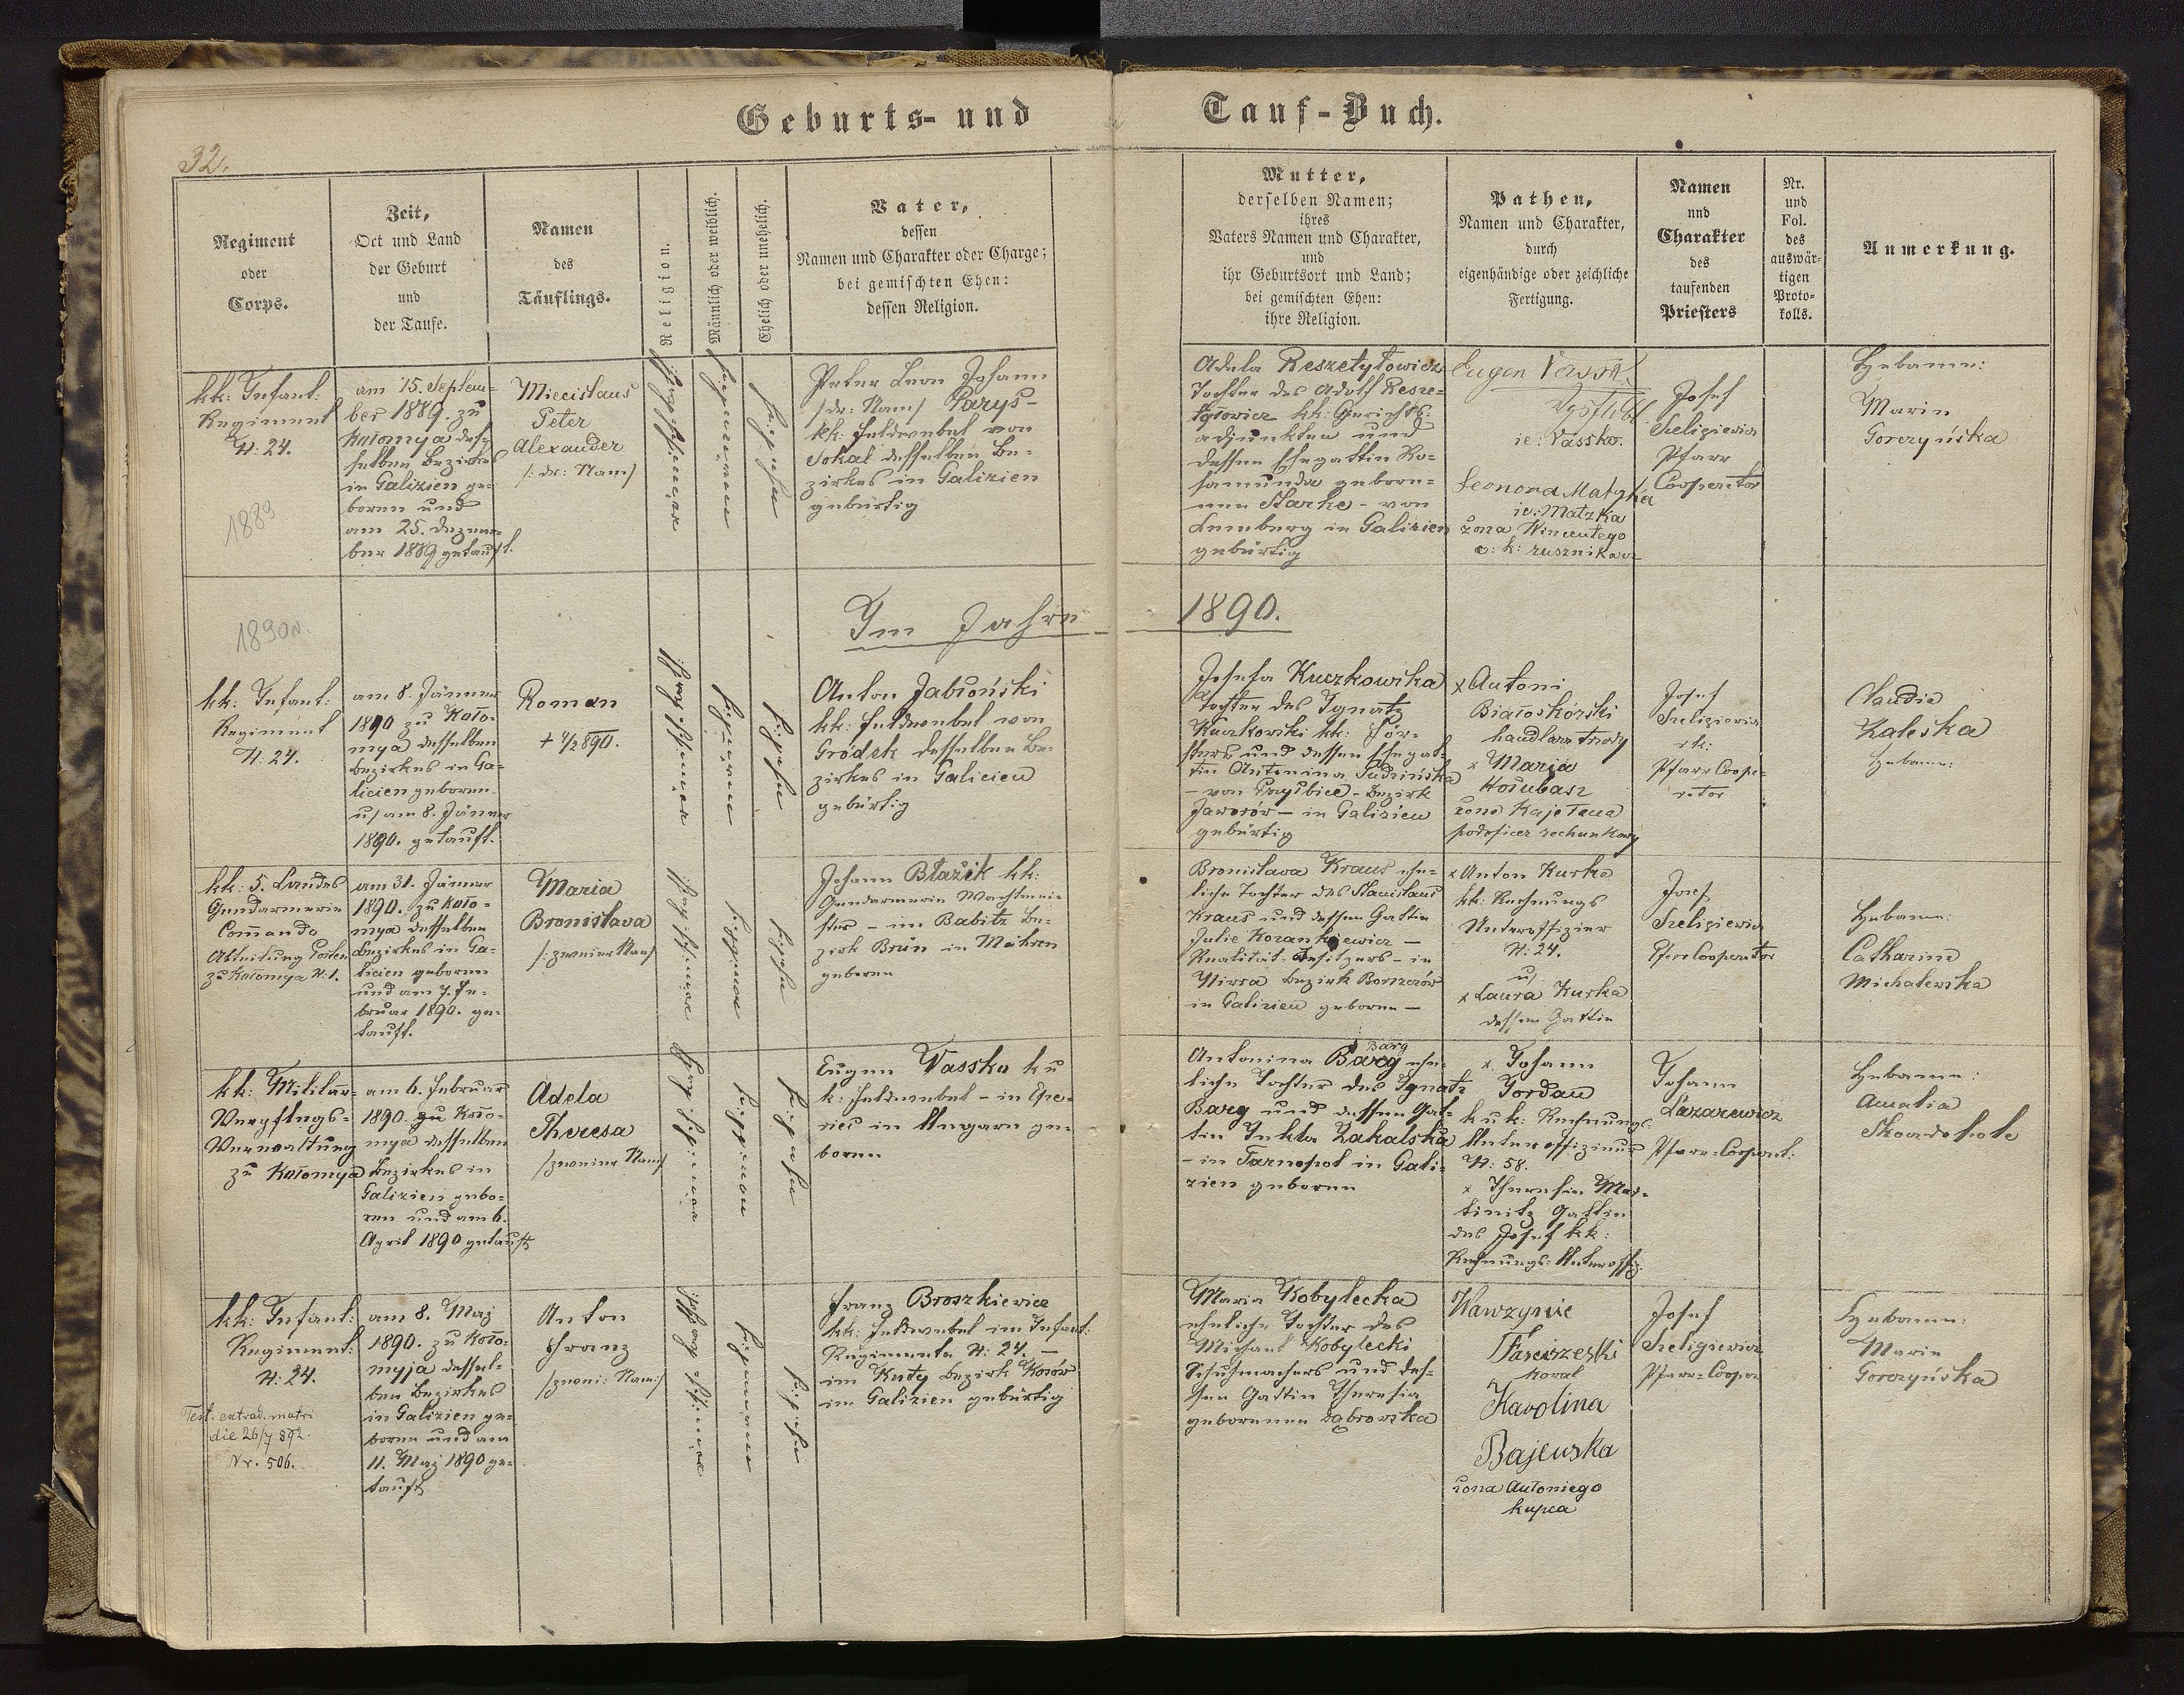 Geburts- und Tauf-Buch.
32.
Regiment
oder
Corps.
Zeit,
Ort und Land
der Geburt
und
der Taufe.
Namen
des
Täuflings.
Religion.
Männlich oder weiblich.
Ehelich oder unehelich.
Vater,
dessen
Namen und Charakter oder Charge;
bei gemischten Ehen:
dessen Religion.
Mutter,
derselben Namen;
ihres
Vaters Namen und Charakter,
und
ihr Geburtsort und Land;
bei gemischten Ehen:
ihre Religion.
Pathen,
Namen und Charakter,
durch
eigenhändige oder zeichliche
Fertigung.
Namen
und
Charakter
des
taufenden
Priesters
Nr.
und
Fol.
des
auswär-
tigen
Proto-
kolls.
Anmerkung.
kk: Infant:
Regiment
N: 24.
1889
am 15. Septem-
ber 1889. zu
Kołomya des-
selben Bezirkes
in Galizien ge-
boren und
am 25. Dezem-
ber 1889 getauft.
Miecislaus
Peter
Alexander
/: dr: Nam/
männlich
ehelich
Peter Leon Johann
/dr: Nam/ Parys-
kk: Feldwebel von
Sokal desselben Be-
zirkes in Galizien
gebürtig
Adela Reszetyłowicz
Tochter des Adolf Resze-
tyłowicz kk: Gerichts-
adjunkten und
dessen Ehegattin Ro-
samunda gebore-
nen Starke - von
Lemberg in Galizien
gebürtig
Eugen Vassk
ie: Vassko.
Leonora Matzka
ie: Matzka
żona Wincentego
c: k: rusznikarz
Josef
Szeligiewicz
Pfarr
Cooperator
Hebamme:
Marie
Gorczyńska
1890
Im Jahre 1890.
kk: Infant:
Regiment
N: 24.
am 8. Jänner
1890 zu Koło-
mya desselben
Bezirkes in Ga-
licien geboren
u/ am 8. Jänner
1890. getauft.
Roman
+ 4/2 890.
männlich
ehelich
Anton Jabłoński
kk: Feldwebel von
Gródek desselben Be-
zirkes in Galicien
gebürtig
Josefa Kuczkowska
Tochter des Ignatz
Kuczkowski kk: För-
sters und dessen Ehegat-
tin Antonina Sudzińska
- von Przyłbice - Bezirk
Jaworów - in Galizien
gebürtig
x Antoni
Białoskórski
handlarz trzody
x Marja
Hołubasz
żona Kajetana
podoficer rachunkowy
Josef
Szeligiewicz
rk:
Pfarr Coope-
rator
Claudia
Zaleska
Hebamme:
kk: 5. Landes
Gendarmerie
Commando
Abteilung Posten
zu Kołomya N: 1.
am 31. Jänner
1890. zu Koło-
mya desselben
Bezirkes in Ga-
licien geboren
und am 7. Fe-
bruar 1890. ge-
tauft.
Maria
Bronislava
/: zweier Nam/
weiblich
ehelich
Johann Blažik kk:
Gendarmerie Wachtmei-
ster - im Babitz Be-
zirk Brün in Mähren
geboren
Bronislava Kraus ehe-
liche Tochter des Stanislaus
Kraus und dessen Gattin
Julie Kozankiewicz -
Realität. Besitzers - in
Niwra Bezirk Borszczów
in Galizien geboren -
x Anton Kurka
kk: Rechnungs
Unteroffizier
N: 24.
u/
x Laura Kurka
dessen Gattin
Josef
Szeligiewicz
Pfarr Cooperator
Hebamme:
Catharina
Michalewska
kk: Militär-
Verpflegs-
Verwaltung
zu Kołomya
am 6. Februar
1890. zu Koło-
mya desselben
Bezirkes in
Galizien gebo-
ren und am 6.
April 1890 getauft
Adela
Theresa
/zweier Nam/
weiblich
ehelich
Eugen Vassko k u
k: Feldwebel - in Epe-
ries in Ungarn ge-
boren
Barg
Antonina Barg ehe-
liche Tochter des Ignatz
Barg und dessen Gat-
tin Tekla Zakalska
- in Tarnopol in Gali-
zien geboren
x Johann
Jordan
k u k: Rechnungs-
Unteroffizier
N: 58.
x Theresia Mar-
tinitz Gattin
des Josef kk:
Rechnungs-Unteroffiz.
Johann
Łazarewicz
Pfarr-Cooperat:
Hebamme:
Amalia
kk: Infant:
Regiment:
N: 24.
Test. extrad. matri
die 26/7 892.
Nr. 506.
am 8. Maj
1890. zu Koło-
myja dessel-
ben Bezirkes
in Galizien ge-
boren und am
11. Maj 1890 ge-
tauft
Anton
Franz
/zwei: Nam:/
männlich
ehelich
Franz Broszkiewicz
kk: Feldwebel im Infant:
Regimente N: 24. -
im Kuty Bezirk Kosów
in Galizien gebürtig
Maria Kobylecka
eheliche Tochter des
Michael Kobylecki
Schuhmachers und des-
sen Gattin Theresia
geborenen Dąbrowska
Wawrzyniec
kowal
Karolina
Bajewska
żona Antoniego
kupca
Josef
Szeligiewicz
Pfarr-Cooper
Hebamme:
Marie
Gorczyńska